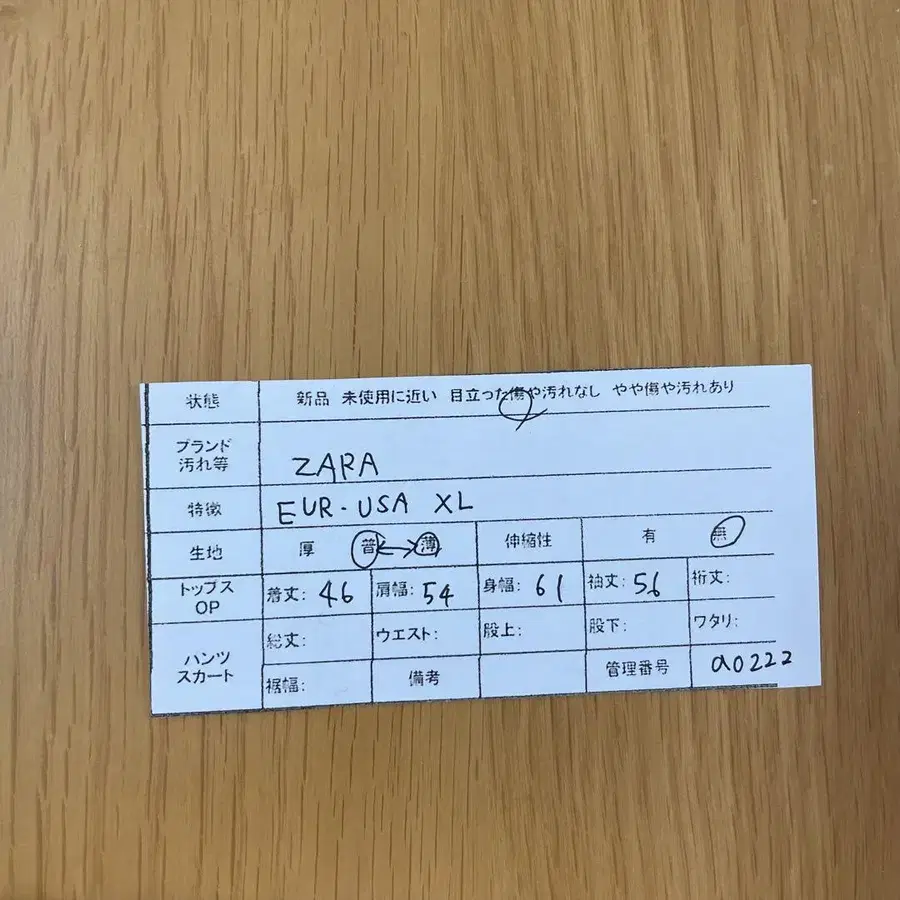 状態 新品 未使用に近い 目立った傷や汚れなし やや傷や汚れあり
ブランド
汚れ等 ZARA
特徴 EUR-USA XL
生地 厚 普 ↔ 薄 伸縮性 有 無
トップス
OP
着丈: 46 肩幅: 54 身幅: 61 袖丈: 56 裄丈:
パンツ
スカート
総丈: ウエスト: 股上: 股下: ワタリ:
裾幅: 備考 管理番号 a0222